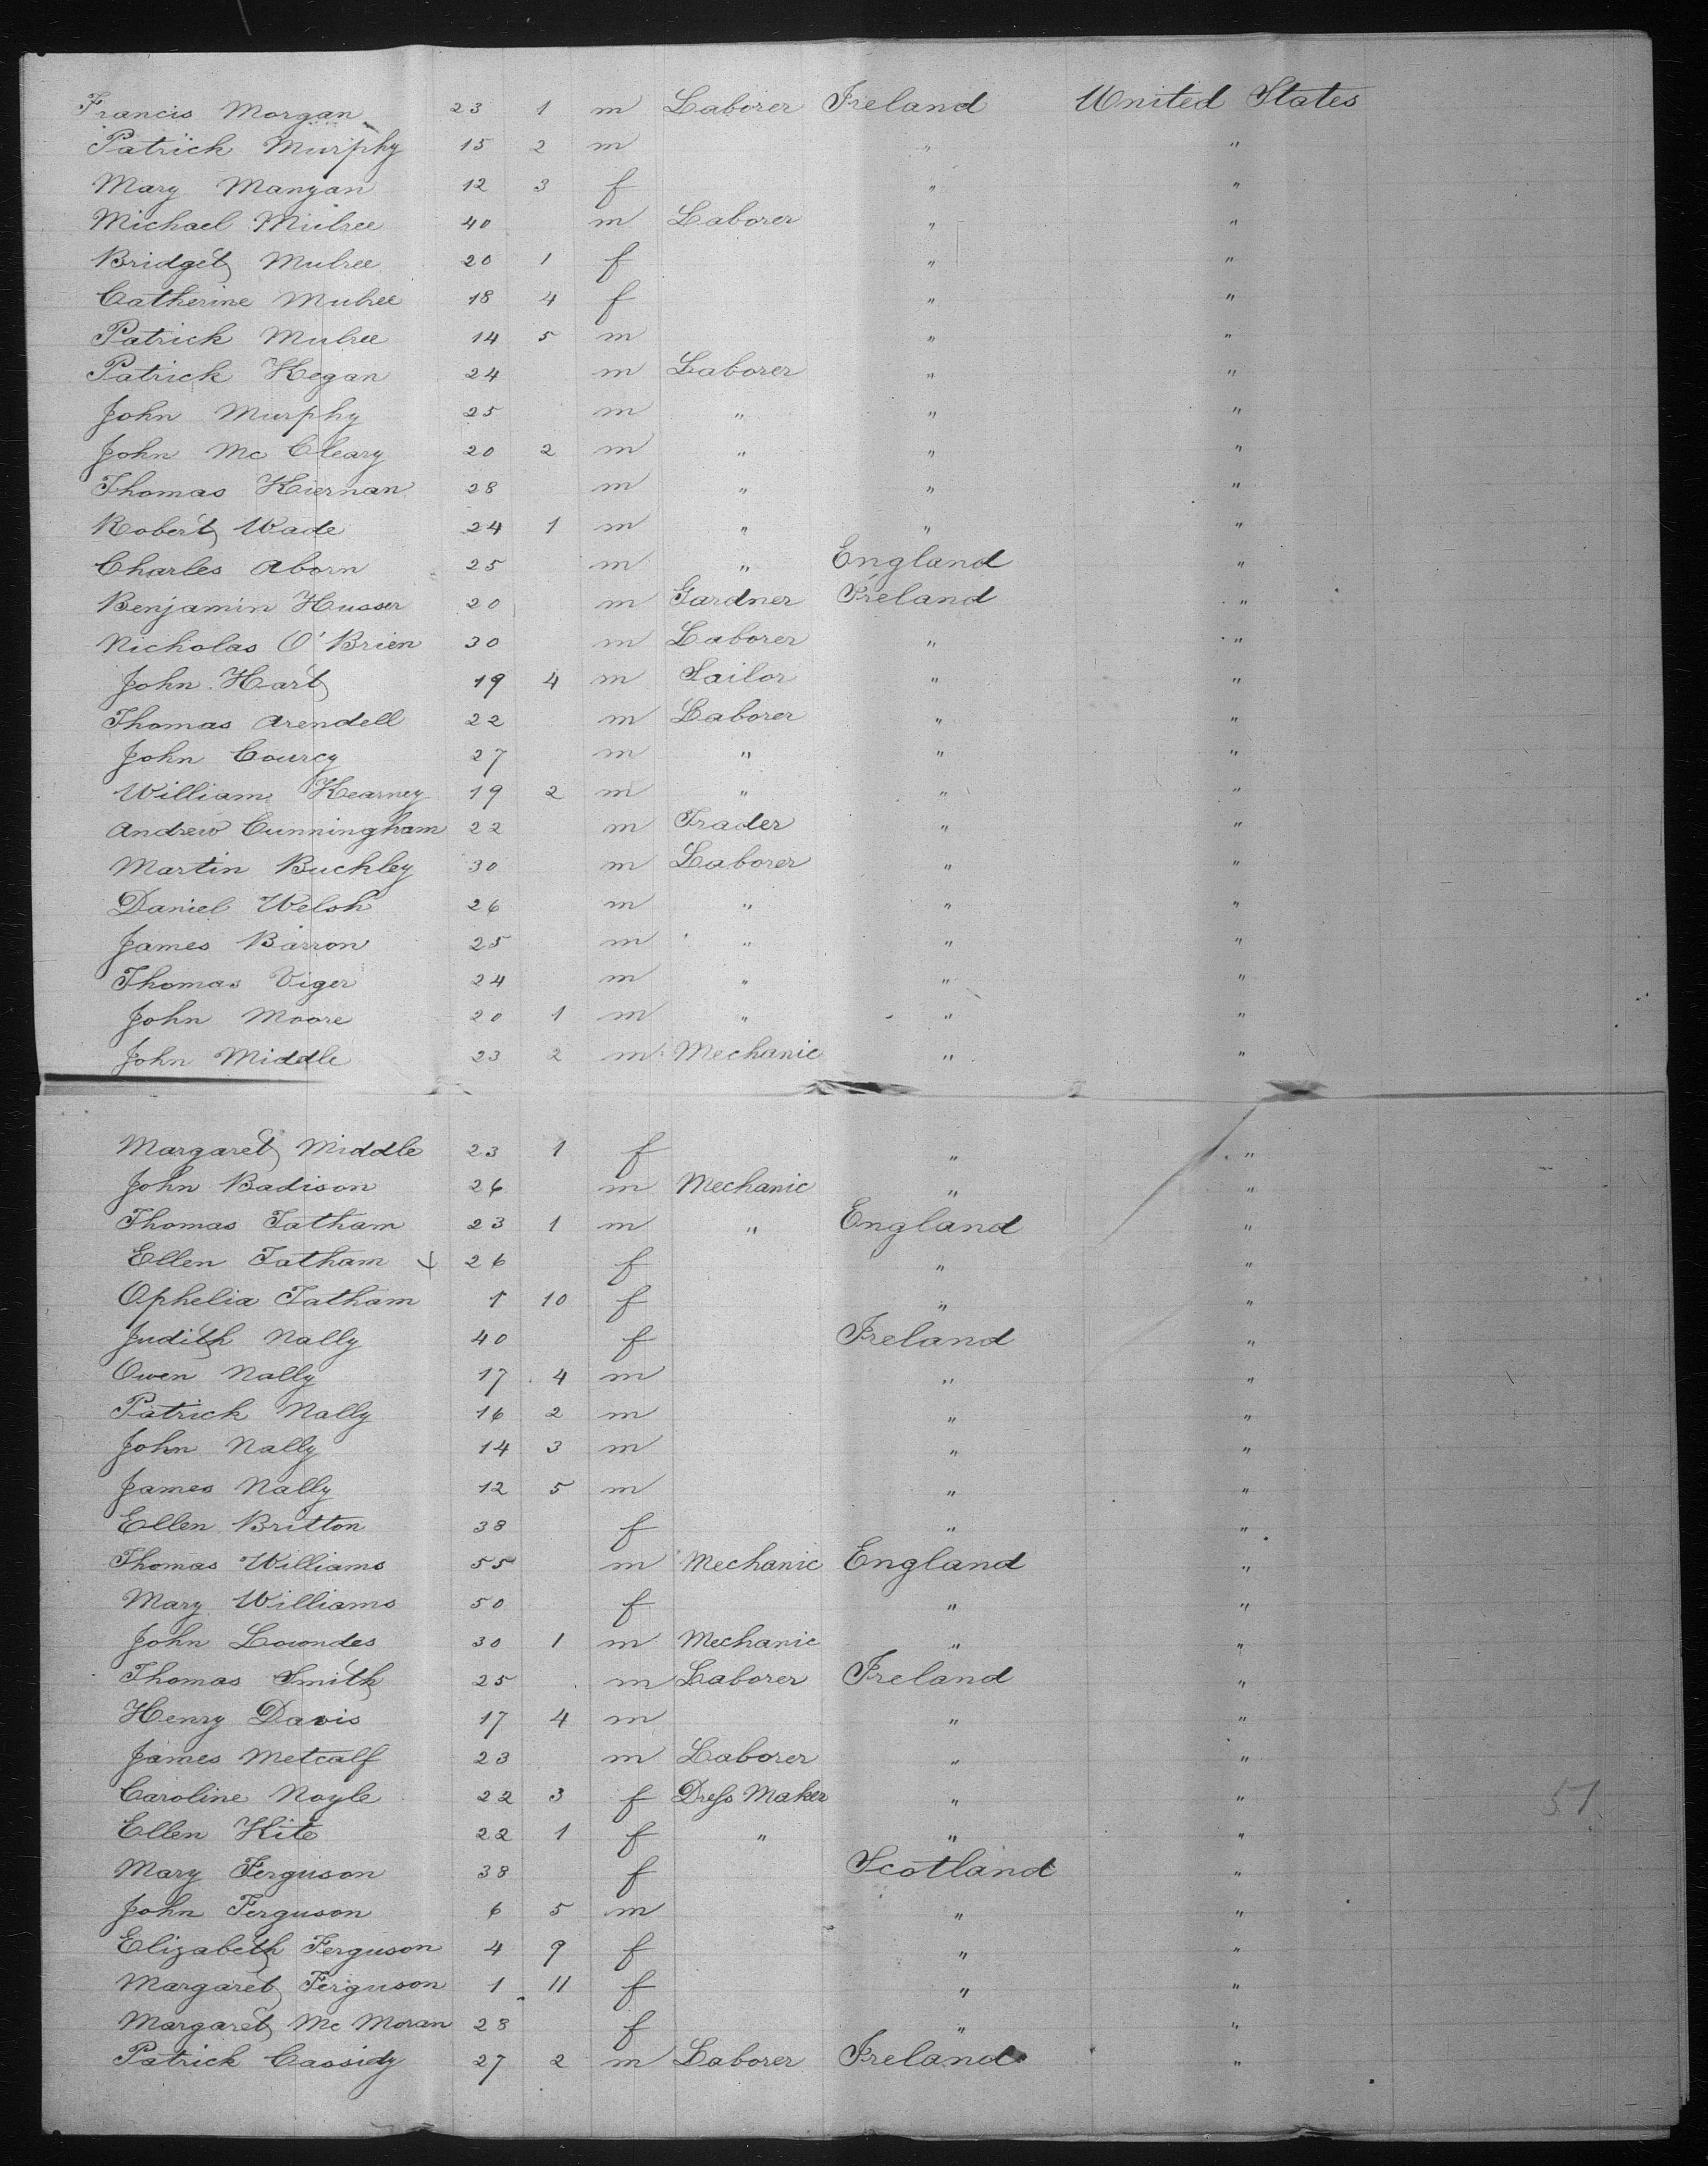 Francis Morgan 23 1 m Laborer Ireland United States
Patrick Murphy 15 2 m " "
Mary Mangan 12 3 f " "
Michael Mulree 40 m Laborer " "
Bridget Mulree 20 1 f " "
Catherine Mulree 18 4 f " "
Patrick Mulree 14 5 m " "
Patrick Kegan 24 m Laborer " "
John Murphy 25 m " " "
John Mc Cleary 20 2 m " " "
Thomas Kiernan 28 m " " "
Robert Wade 24 1 m " " "
Charles Aborn 25 m " England "
Benjamin Husser 20 m Gardner Ireland "
Nicholas O'Brien 30 m Laborer " "
John Hart 19 4 m Sailor " "
Thomas Arendell 22 m Laborer " "
John Courcy 27 m " " "
William Kearney 19 2 m " " "
Andrew Cunningham 22 m Trader " "
Martin Buckley 30 m Laborer " "
Daniel Welsh 26 m " " "
James Barron 25 m " " "
Thomas Viger 24 m " " "
John Moore 20 1 m " " "
John Middle 23 2 m Mechanic " "
Margaret Middle 23 1 f " "
John Badison 26 m Mechanic " "
Thomas Tatham 23 1 m " England "
Ellen Tatham 26 f " "
Ophelia Tatham 1 10 f " "
Judith Nally 40 f Ireland "
Owen Nally 17 4 m " "
Patrick Nally 16 2 m " "
John Nally 14 3 m " "
James Nally 12 5 m " "
Ellen Britton 38 f " "
Thomas Williams 55 m Mechanic England "
Mary Williams 50 f " "
John Lowndes 30 1 m Mechanic " "
Thomas Smith 25 m Laborer Ireland "
Henry Davis 17 4 m " "
James Metcalf 23 m Laborer " "
Caroline Noyle 22 3 f Dress Maker " "
Ellen Kite 22 1 f " " "
Mary Ferguson 38 f Scotland "
John Ferguson 6 5 m " "
Elizabeth Ferguson 4 9 f " "
Margaret Ferguson 1 11 f " "
Margaret Mc Moran 28 f " "
Patrick Cassidy 27 2 m Laborer Ireland "